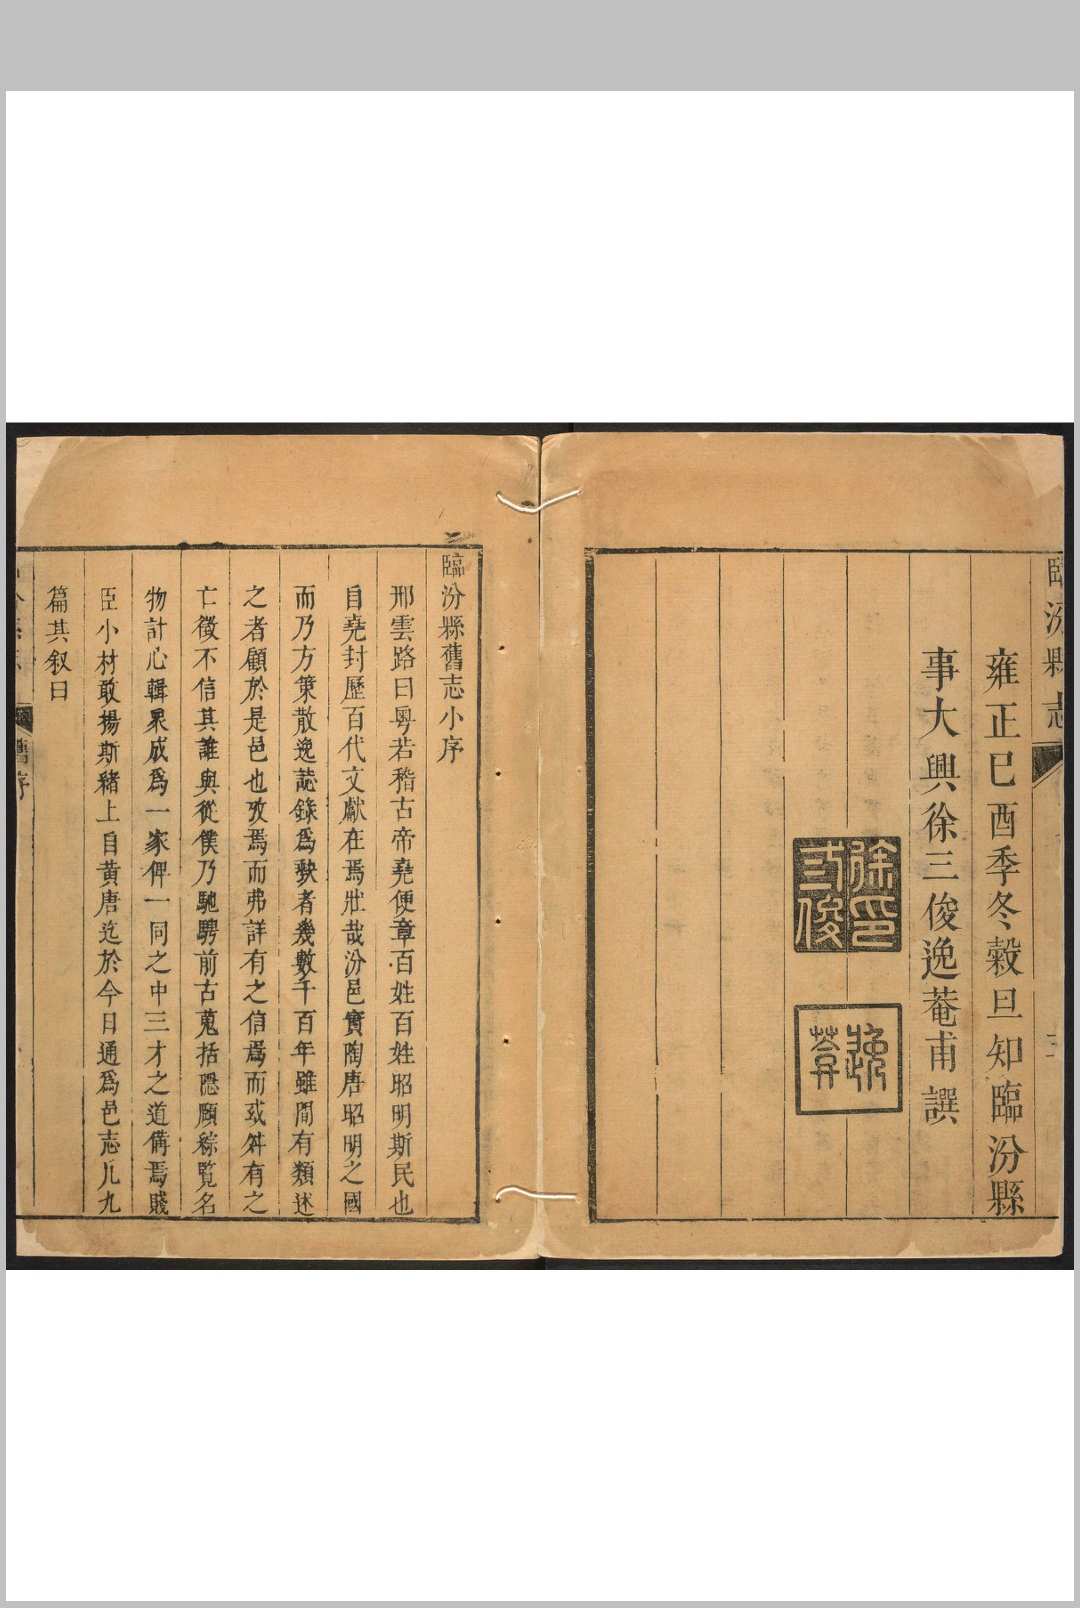 臨汾縣志
雍正巳酉季冬穀旦知臨汾縣
事大興徐三俊逸菴甫譔
徐印弎俊
逸菴
臨汾縣舊志小序
邢雲路曰粤若稽古帝堯便章百姓百姓昭明斯民也
自堯封歷百代文獻在焉壯哉汾邑實陶唐昭明之國
而乃方策散逸誌錄爲缺者幾數千百年雖間有類述
之者顧於是邑也攷焉而弗詳有之信焉而或舛有之
亡徵不信其誰與從僕乃馳騁前古蒐括隱願綜覧名
物計心輯杲成爲一家俾一同之中三才之道備焉賤
臣小材敢揚斯緒上自黄唐迄於今日通爲邑志凡九
篇其叙曰
舊序